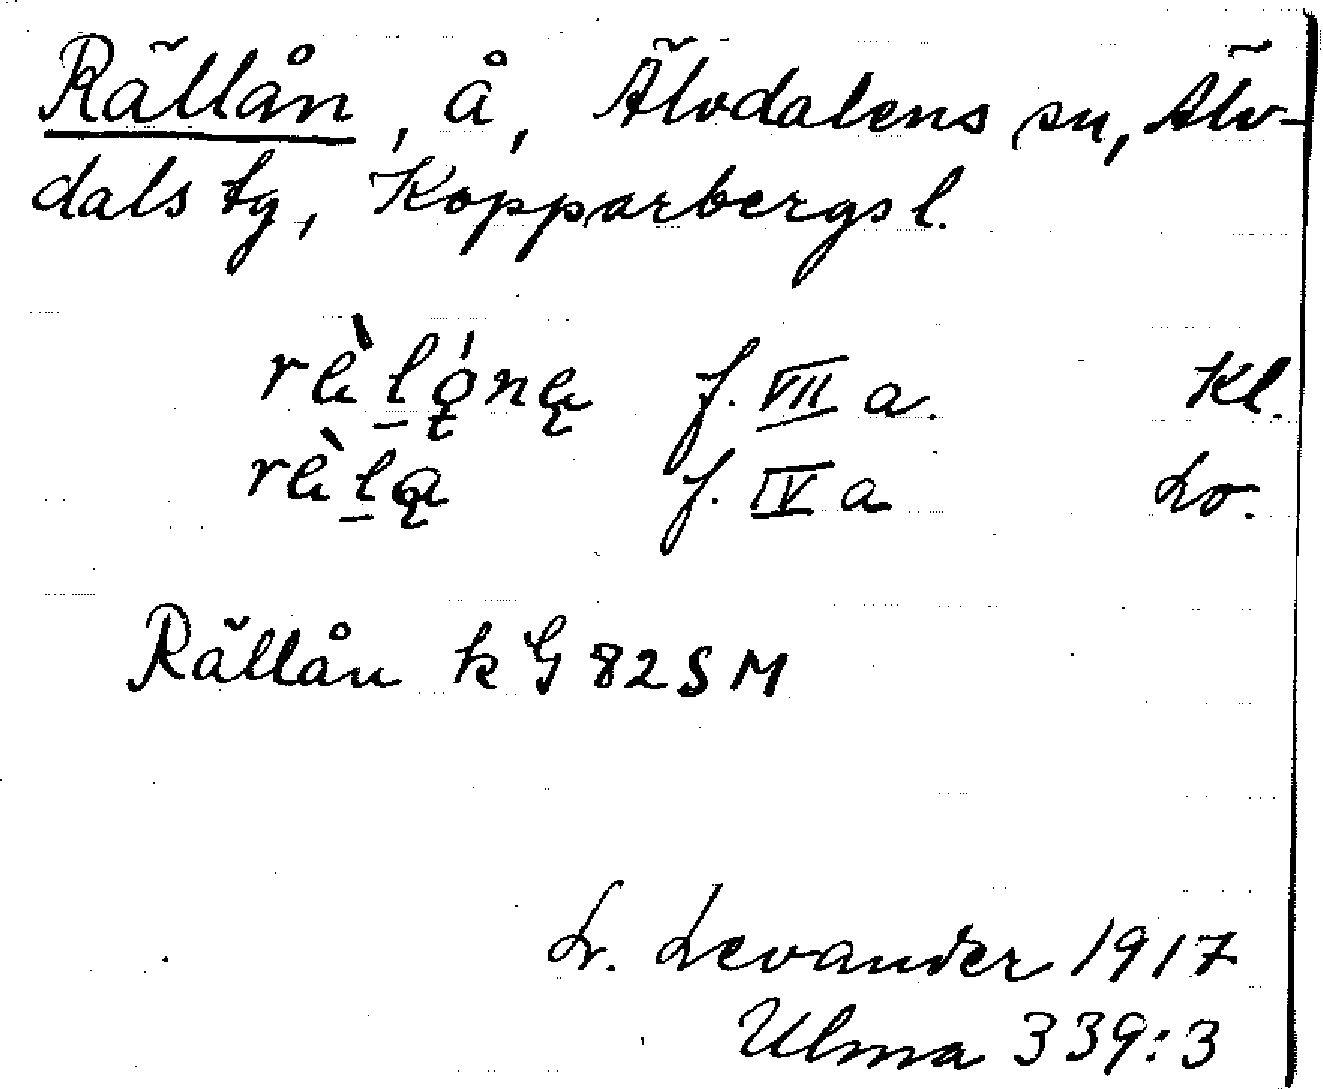 Rällån, å, Älvdalens sn, Älv-
dals tg, Kopparbergs l.
rɛ̀l̠ǫ́ną f. VII a. Kl.
rɛ̀l̠ą f. IV a Lo.
Rällån k G 82 S M
L. Levander 1917
Ulma 339:3